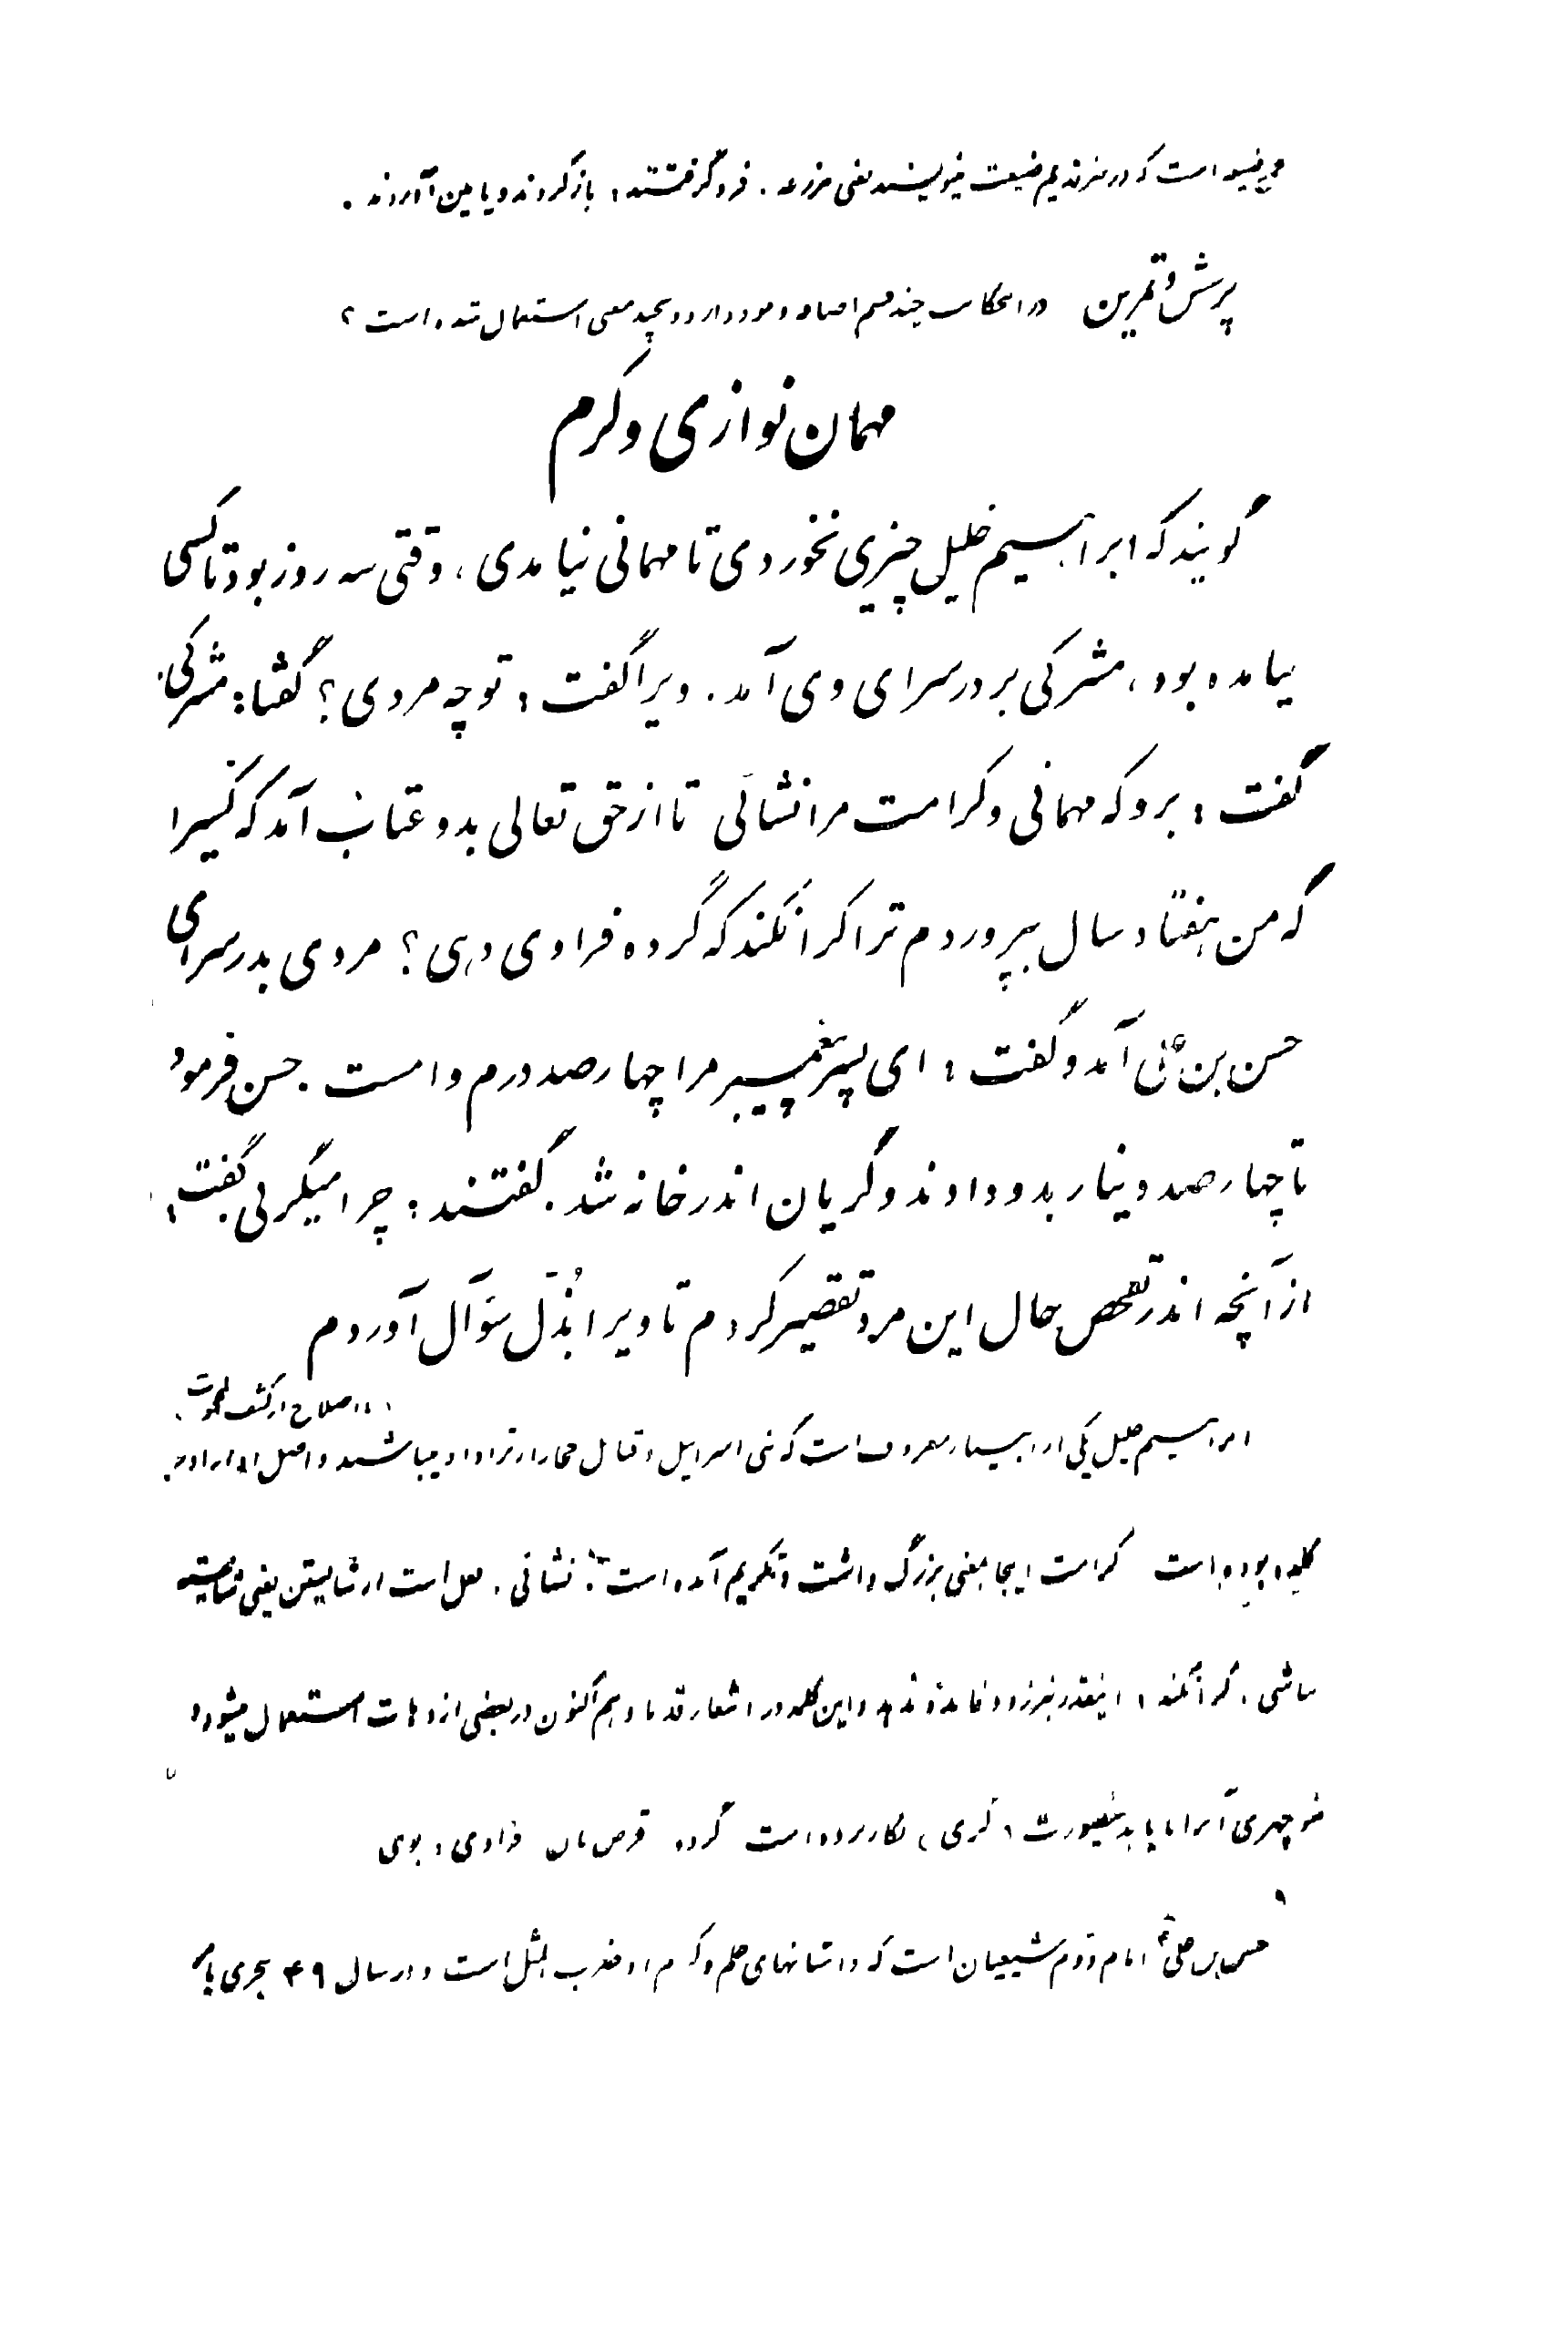 است که در نثر قدیم ضیعت مینویسند یعنی مزرعه . فرو گرفتند : باز کردند و پایین آوردند .
پرسش و تمرین در این حکایت چند قسم اضافه وجود دارد و بچه معنی استعمال شده است ؟
مهمان نوازی و کرم
گویند که ابراهیم خلیل چیزی نخوردی تا مهمانی نیامدی ، وقتی سه روز بود تا کسی
نیامده بود ، مشرکی بر در سرای وی آمد . ویرا گفت : تو چه مردی ؟ گفتا : مشرکی .
گفت : برو که مهمانی و کرامت مرا نشائی تا از حق تعالی بدو عتاب آمد که کسیرا
که من هفتاد سال بپروردم ترا کرا نکند که گرده فرا وی دهی ؟ مردی بدر سرای
حسن بن علی آمد و گفت : ای پسر پیغمبر مرا چهارصد درم وامست . حسن فرمود
تا چهارصد دینار بدو دادند و گریان اندر خانه شد . گفتند : چرا میگریی گفت :
از آنچه اندر تفحص حال این مرد تقصیر کردم تا ویرا بذُلّ سؤآل آوردم
از کشف المحجوب
ابراهیم خلیل یکی از انبیاء معروف است که بنی اسرائیل و قبائل حجاز از نژاد او میباشند و اصل او از اور
کلده بوده است کرامت اینجا بمعنی بزرگ داشت و تکریم آمده است . نشائی . فعل است از شایستن یعنی شایسته
نباشی . کرا نکند ، اینقدر نیرزد و فایده ندهد و این کلمه در اشعار قدما و هم اکنون در بعضی از دهات استعمال میشود و
منوچهری آنرا بصورت ( کری ) بکار برده است گرده قرص نان فرا وی : بوی
حسن بن علی امام دوم شیعیان است که داستانهای حلم و کرم او ضرب المثل است و در سال ۴۹ هجری